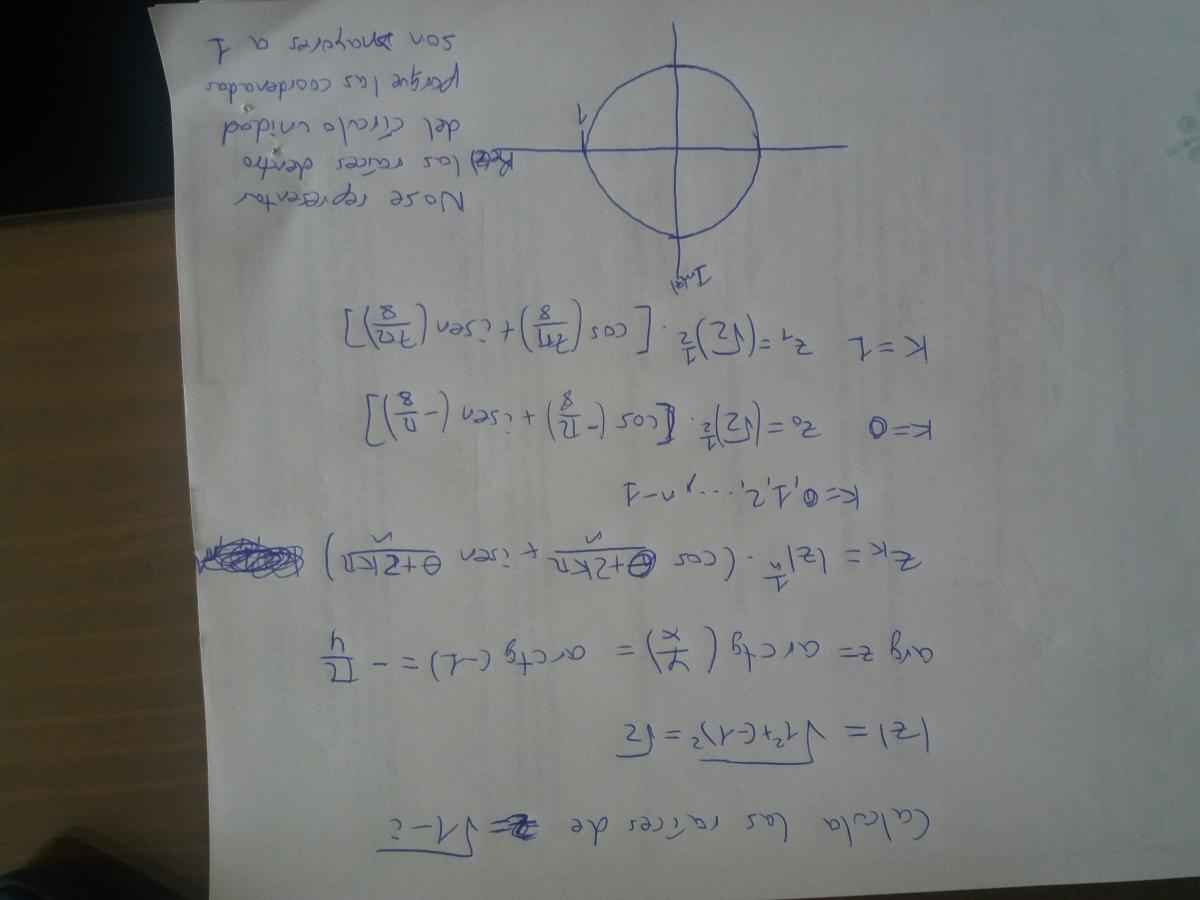 Calcula las raíces de √1-i
|z| = √1²+(-1)² = √2
arg z = arctg (y/x) = arctg (-1) = - π/4
Zk = |z|^1/n · (cos θ+2kπ/n + i sen θ+2kπ/n)
K=0,1,2,....,n-1
K=0 z₀=(√2)^1/2 · [cos (-π/8) + i sen (-π/8)]
K=1 z₁=(√2)^1/2 · [cos (7π/8) + i sen (7π/8)]
Im(z)
Re(z)
1
No se representar
las raíces dentro
del círculo unidad
porque las coordenadas
son mayores a 1